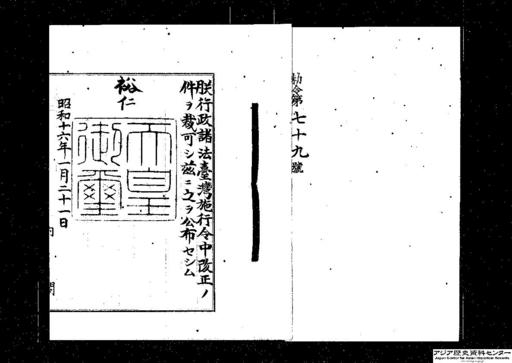 勅令第七十九號
朕行政諸法臺灣施行令中改正ノ
件ヲ裁可シ茲ニ之ヲ公布セシム
裕仁
天皇
御璽
昭和十六年一月二十一日
内閣
アジア歴史資料センター
Japan Center for Asian Historical Records